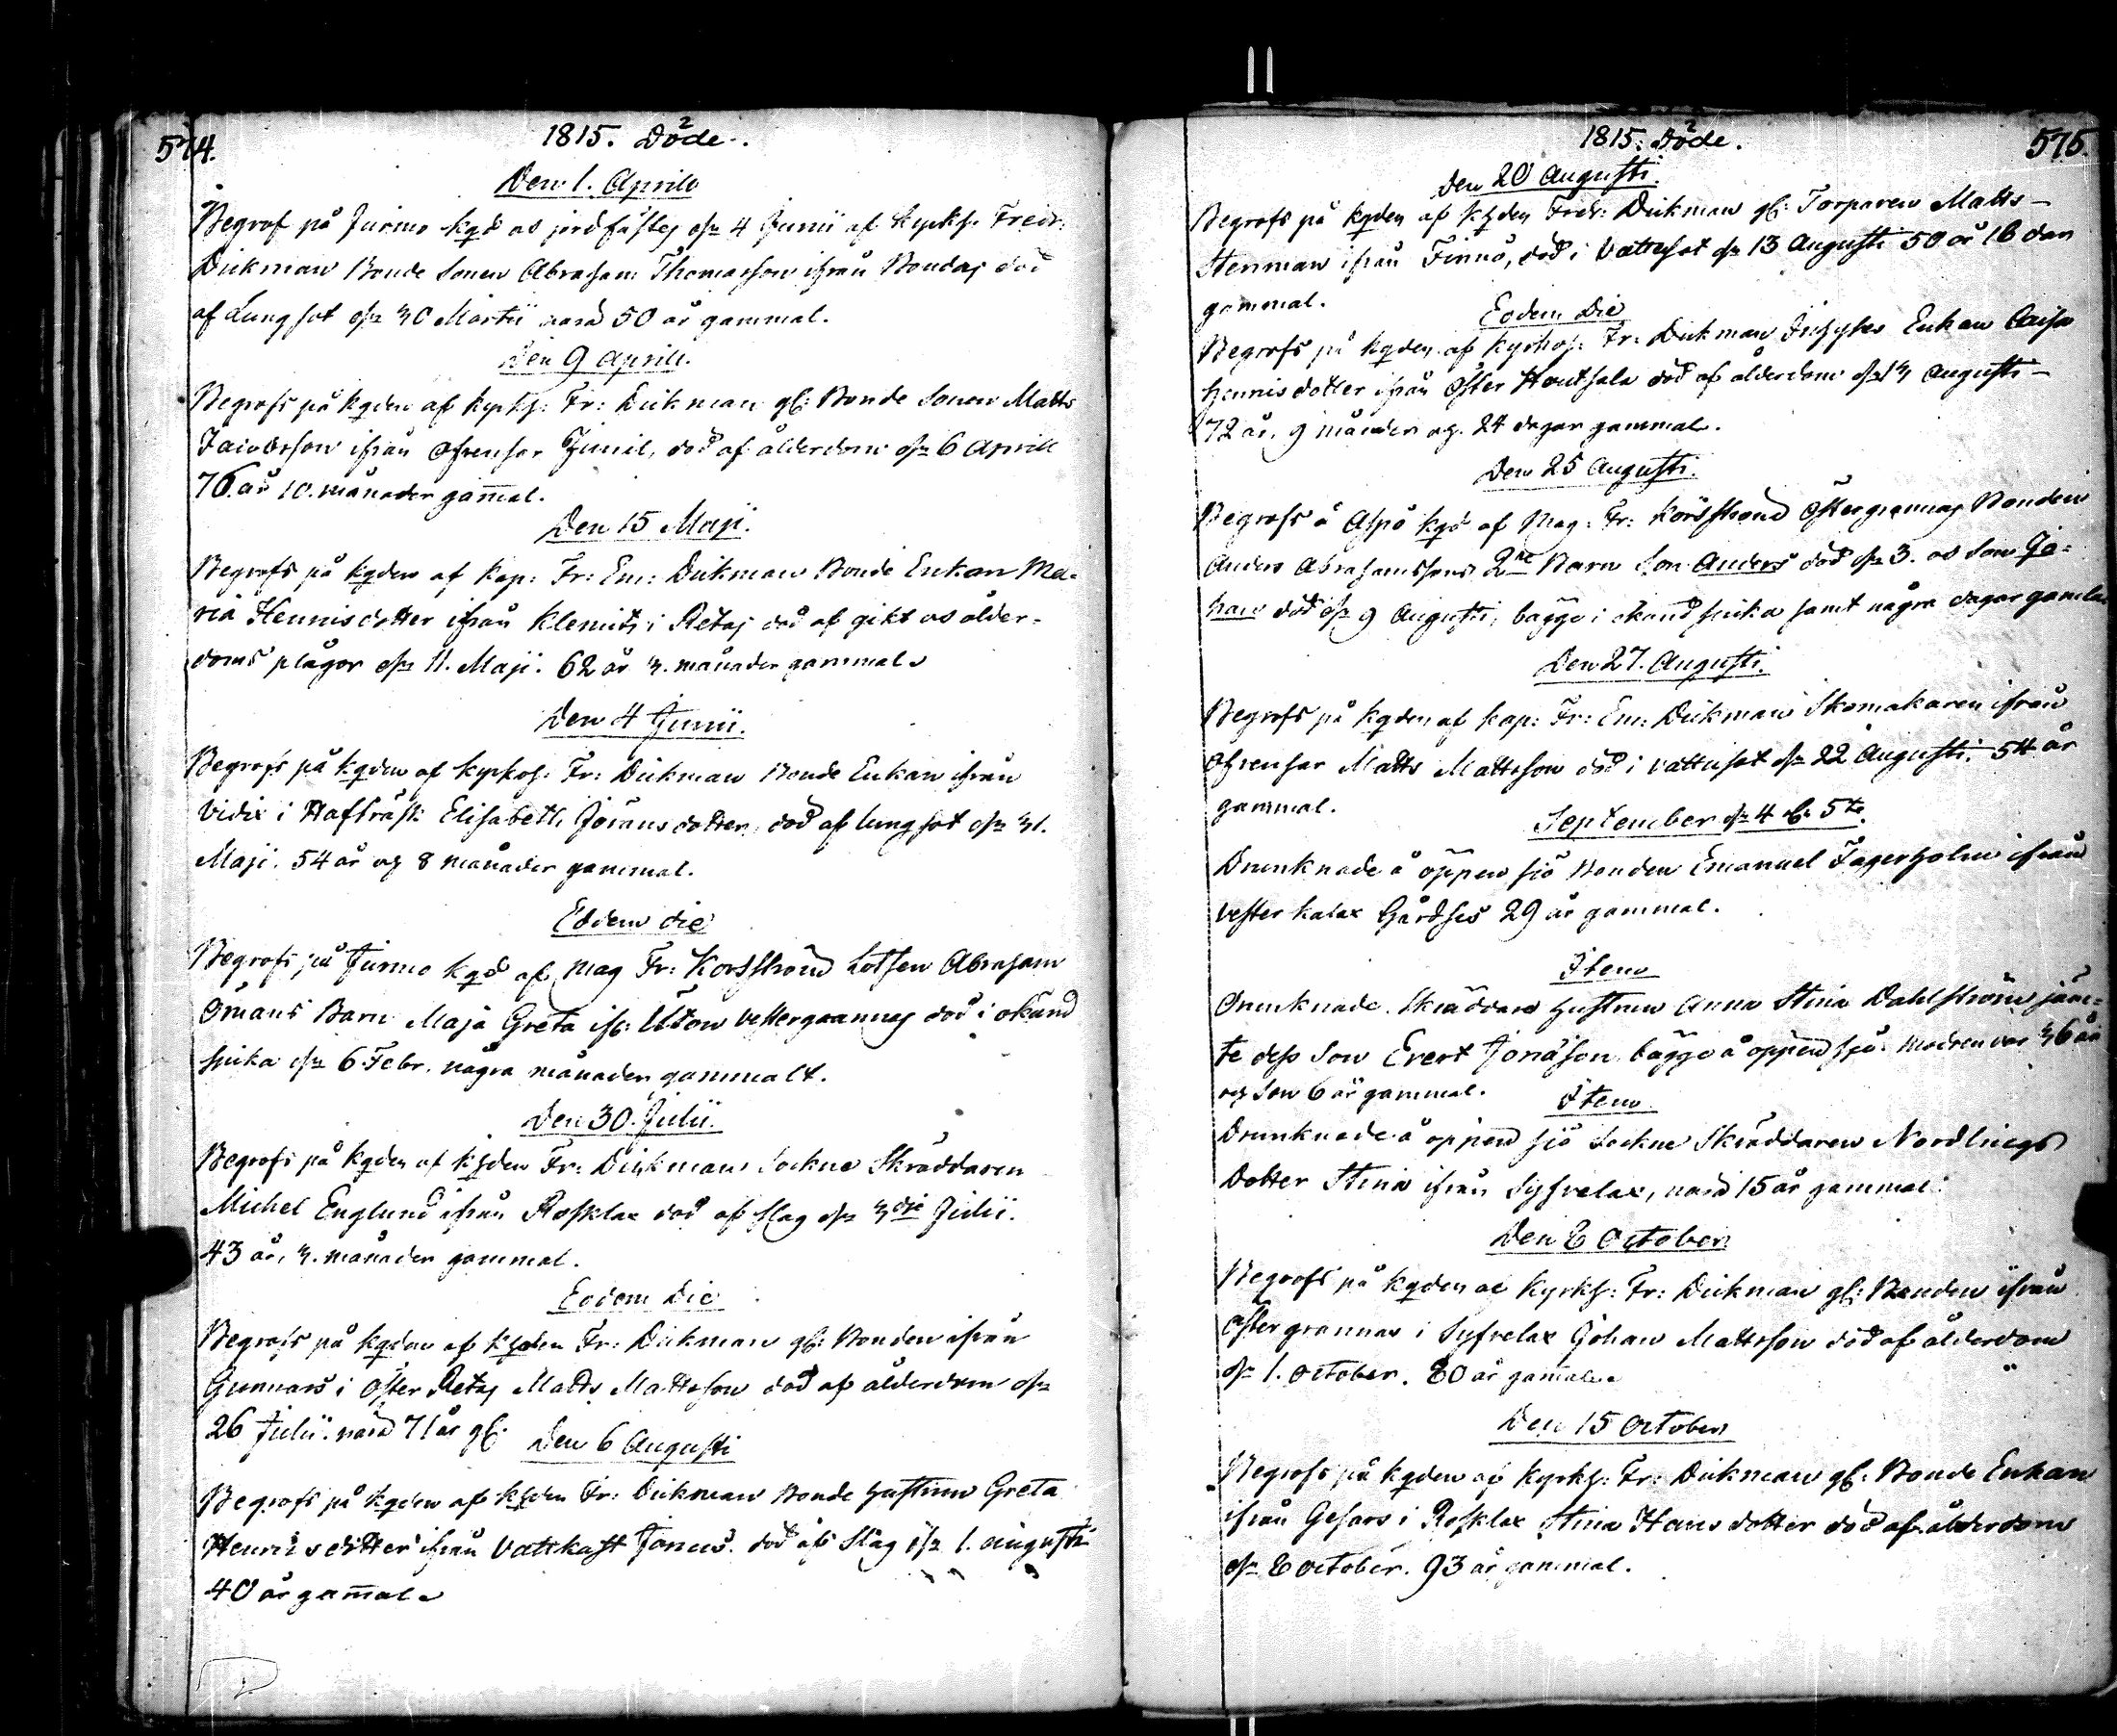 574.
1815. Döde.
Den 1. Aprile
Begrof på Jurmo kgd os jordfästes d. 4 Junii af Kyrkh. Fredr:
Dickman Bonde Sonen Abraham Thomasson ifrån död
af Lungsot d. 30 Martii 50 år gammal.
Den 9 Aprill.
Begrofs på kgden af Kyrkh: Fr: Dickman gl: Bonde Sonen Matts
Jacobsson ifrån död af ålderdom d. 6 Aprill
76 år 10. månader gam̅al.
Den 15 Maji.
Begrofs på kgden af Kap: Fr: Em: Dickman Bonde Enkan Ma-
ria Hennisdotter ifrån Klemets i Retas död af gikt os ålder-
doms plågor d. 11. Maji. 62 år 3. månader gammal
Den 4 Junii.
Begrofs på kgden af Kyrkoh: Fr: Dickman Bonde Enkan ifrån
Vidix i Hafträsk Elisabeth Jöransdotter, död af lungsot d. 31.
Maji. 54 år og 8 månader gammal.
Eodem die
Begrofs på Jurmo kgd af Mag Fr: Korsström Lotsen Abraham
Ömans Barn Maja Greta ifr: Utöen Vestergrannas död i okänd
sjuka d. 6 Febr. några månader gammalt.
Den 30. Julii.
Begrofs på kgden af Khden Fr: Dickman Sockne Skräddaren
Michel Englund ifrån Roslax död af slag d. 3die Julii.
43 år, 3. månader gammal.
Eodem Die
Begrofs på kgden af Khden Fr: Dickman gl: Bonden ifrån
Gunnars i Öster Retas Matts Mattsson död af ålderdom d.
26 Julii. 71 år gl:
Den 6 Augusti
Begrofs på kgden af Khden Fr: Dickman Bonde hustrun Greta
Henricsdotter ifrån Vattkast Jonas. död af Slag d. 1. Augusti
40 år gam̅al
1815. Döde.
575.
Den 20 Augusti.
Begrofs på kgden af Khden Fredr: Dickman gl: Torparen Matts
Stenman ifrån Finnö, död i Vattusot d. 13 Augusti 50 år 16 dar
gammal.
Eodem Die
Begrofs på kgden af Kyrkoh: Fr: Dickman Inhyses Enkan Caisa
Hennisdotter ifrån Öster Houtsala död af ålderdom d. 13 Augusti
72 år, 9 månader og 24 dagar gammal.
Den 25 Augusti.
Begrofs å Aspö kgd af Mag: Fr: Korsström Östergrannas Bonden
Anders Abrahamssons 2ne Barn Son Anders död d. 3. os Son Jo-
han död d. 9 Augusti, bägge i okänd sjuka samt några dagar gamla
Den 27. Augusti.
Begrofs på kgden af Kap: Fr: Em: Dickman Skomakaren ifrån
Matts Mattsson död i vattusot d. 22 Augusti. 54 år
gammal.
September d. 4 el. 5te.
Drunknade å öppen sjö Bonden Emanuel Fagerholm ifrån
Vesterkalax Gårdses 29 år gammal.
Item
Drunknade Skräddare hustrun Anna Stina Dahlström jäm-
te dess Son Evert Jonasson bägge å öppen sjö. Modren var 36 år
og Son 6 år gammal.
Item
Drunknade å öppen sjö Sockne Skräddaren Nordlings
Dotter Stina ifrån Syfvelax, 15 år gammal.
Den 8 October
Begrofs på kgden af Kyrkh: Fr: Dickman gl: Bonden ifrån
Östergrannas i Syfvelax Johan Mattsson död af ålderdom
d. 1. October. 80 år gam̅al
Den 15 October
Begrofs på kgden af Kyrkh: Fr: Dickman gl: Bonde Enkan
ifrån Gesars i Roslax Stina Hansdotter död af ålderdom
d. 8 October. 93 år gammal.